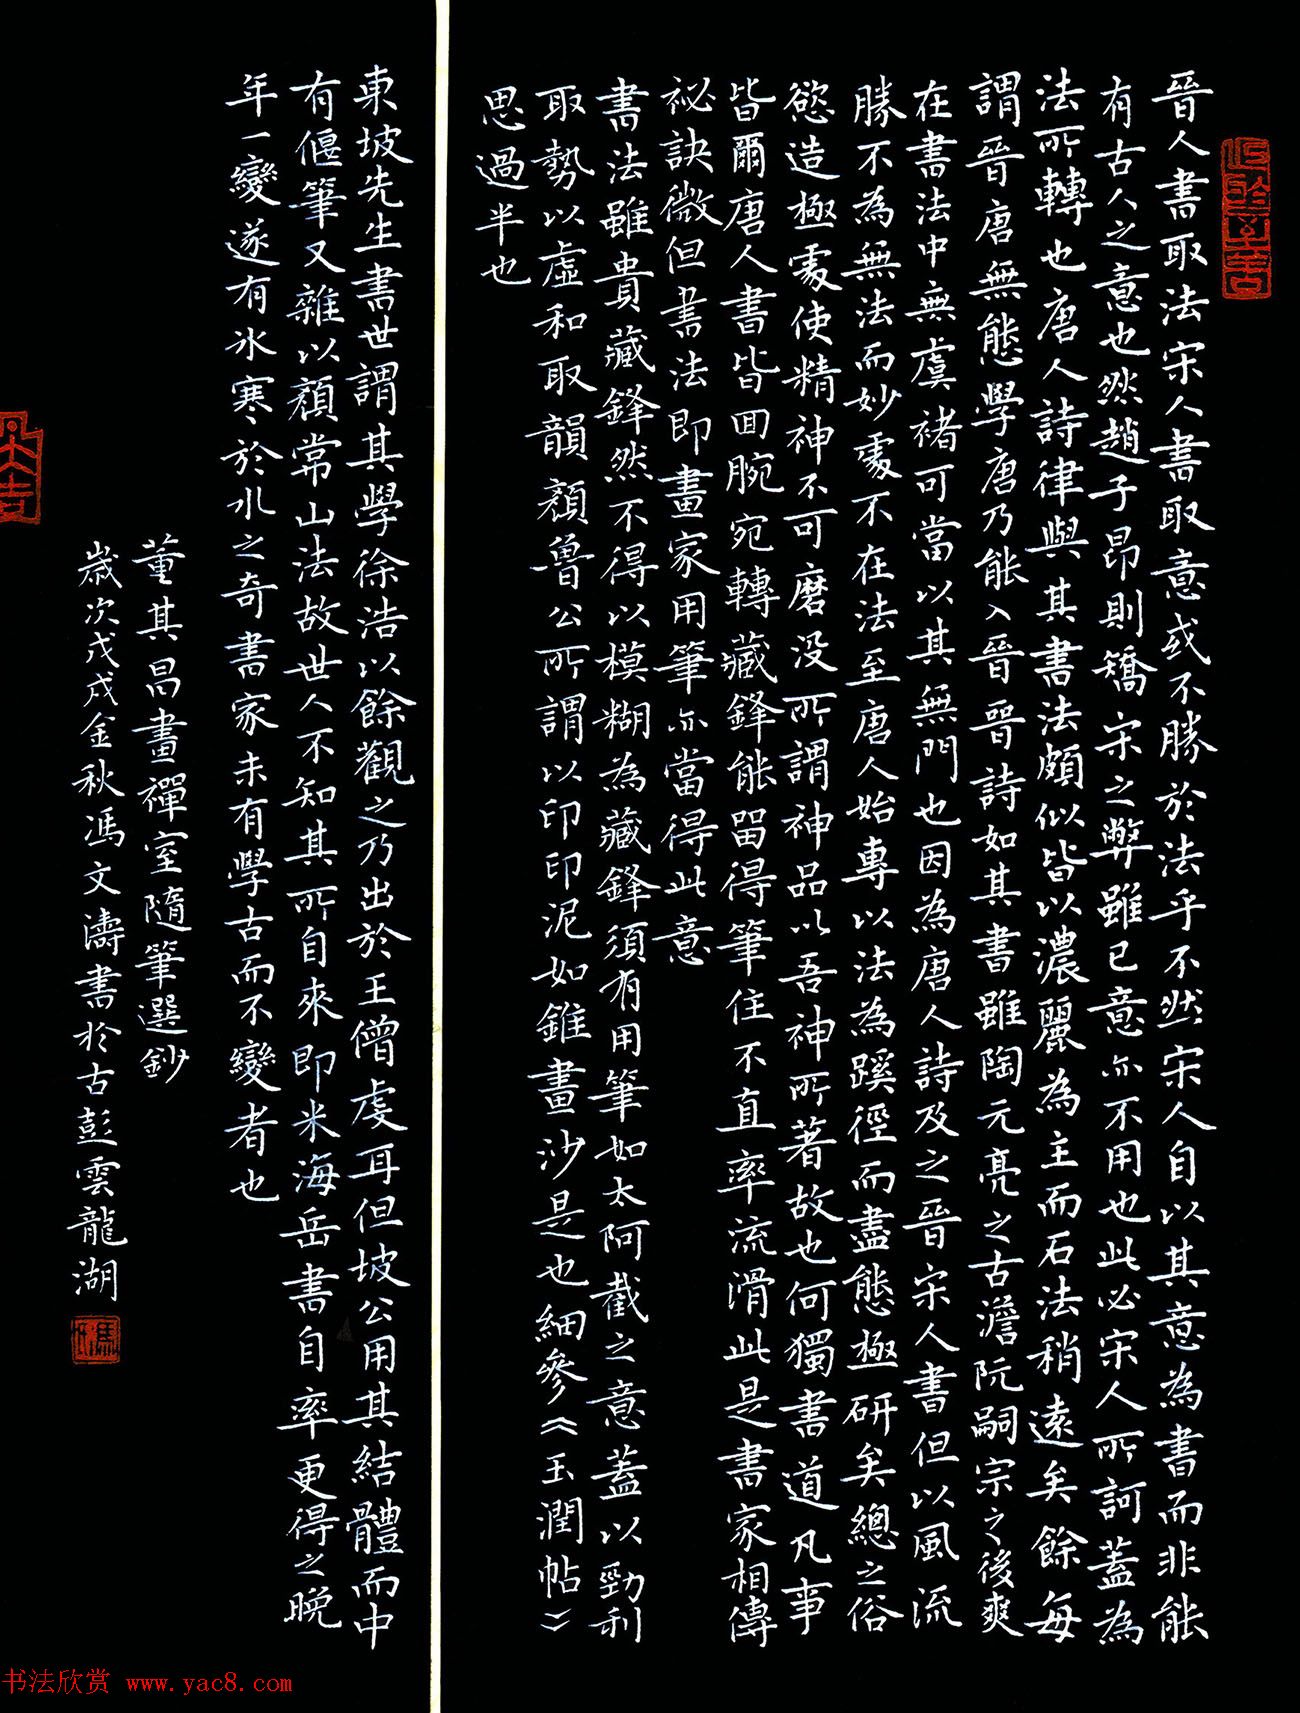 晉人書取法宋人書取意或不勝於法乎不然宋人自以其意為書而非能
有古人之意也然趙子昂則矯宋之弊雖已意亦不用也此必宋人所訶蓋為
法所轉也唐人詩律與其書法頗似皆以濃麗為主而石法稍遠矣餘每
謂晉唐無態學唐乃能入晉晉詩如其書雖陶元亮之古澹阮嗣宗之後爽
在書法中無虞褚可當以其無門也因為唐人詩及之晉宋人書但以風流
勝不為無法而妙處不在法至唐人始專以法為蹊徑而盡態極研矣總之俗
慾造極處使精神不可磨没所謂神品以吾神所著故也何獨書道凡事
皆爾唐人書皆回腕宛轉藏鋒能留得筆住不直率流滑此是書家相傳
祕訣微但書法即畫家用筆亦當得此意
書法雖貴藏鋒然不得以模糊為藏鋒須有用筆如太阿截之意蓋以勁利
取勢以虛和取韻顔魯公所謂以印印泥如錐畫沙是也細參《玉潤帖》
思過半也
東坡先生書世謂其學徐浩以餘觀之乃出於王僧虔耳但坡公用其結體而中
有偃筆又雜以顔常山法故世人不知其所自來即米海岳書自率更得之晩
年一變遂有氷寒於水之奇書家未有學古而不變者也
董其昌畫禪室隨筆選鈔
歲次戊戌金秋馮文濤書於古彭雲龍湖
大吉
书法欣赏 www.yac8.com